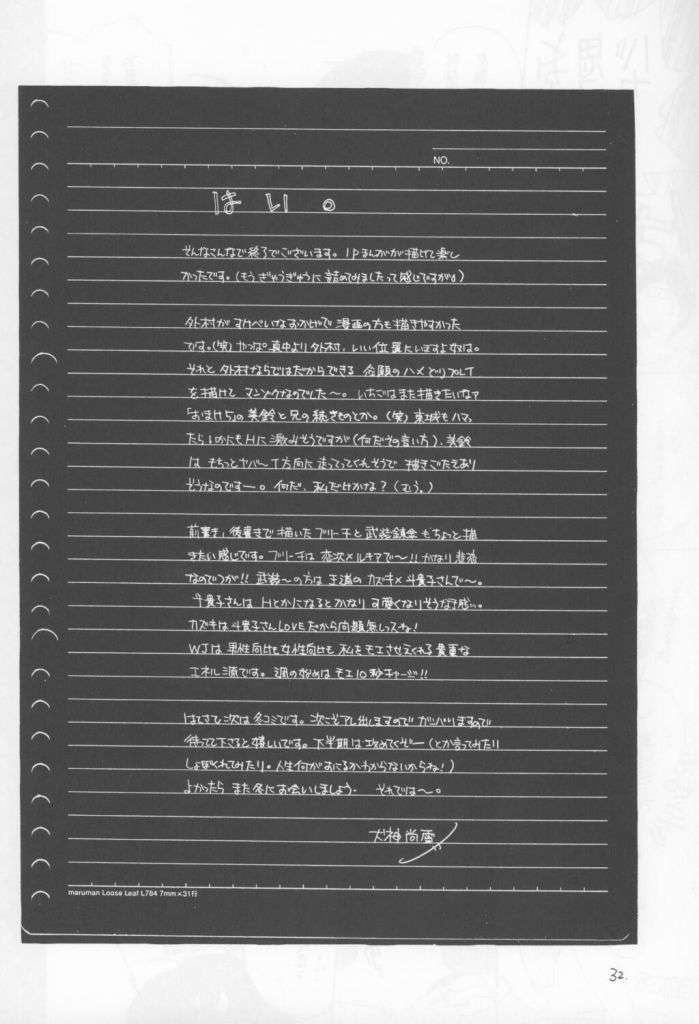 NO.
はい。
そんなこんなで終了でございます。1Pまんがが描けて楽し
かったです。(もうぎゅうぎゅうに詰めてみましたって感じですが!)
外村がすけべいなおかげで漫画の方も描きやすかった
です。(笑)やっぱ真中より外村、いい位置にいますよ奴は。
それと外村ならではだからできる念願のハメどりプレイ
を描けてマンゾクなのでした〜。いちごはまた描きたいなァ
「おまけ5」の美鈴と兄の続きものとか。(笑)東城もハマっ
たらいかにもHに激みそうですが(何だその言い方)、美鈴
は もちっとヤバーイ方向に走ってってくれそうで 描きごたえあり
そうなのですー。何だ、私だけかな?(むう。)
前書き、後書きで描いたブリーチと武装錬金もちょっと描
きたい感じです。ブリーチは恋次×ルキアで〜!!かなり悲恋
なのでつが!!武装〜の方は王道のカズキ×斗貴子さんで〜。
斗貴子さんは Hとかになるとかなり可愛くなりそうな予感…。
カズキは斗貴子さんLOVEだから問題無しっスね!
WJは男性向けも女性向けも私をモエさせてくれる貴重な
エネルギー源です。週の始めはモエ10秒チャージ!!
はてさて次は冬コミです。次こそアレ出しますのでガンバりますので
待ってて下さると嬉しいです。下半期は攻めてくぞー(とか言ってみたり
しょぼくれてみたり。人生何がおこるかわからないからね!)
よかったら また冬にお会いしましょう。 それでは〜。
犬神尚雪
maruman Loose Leaf L784 7mm×31行
32.